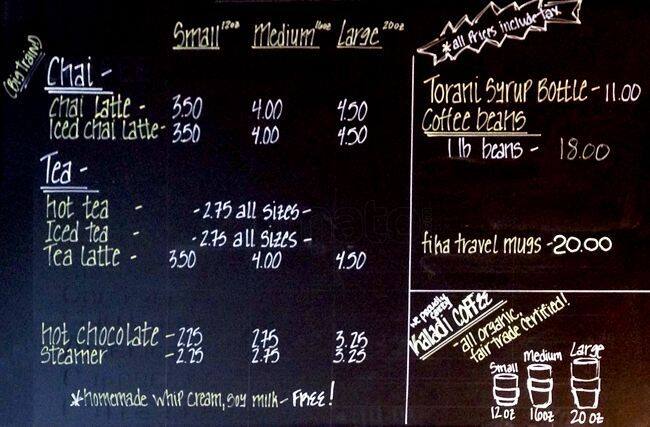 Small 12oz Medium 16oz Large 20oz
(Big Train)
Chai -
Chai Latte - 3.50 4.00 4.50
Iced chai Latte - 3.50 4.00 4.50
Tea -
hot tea - -2.75 all sizes-
Iced tea - -2.75 all sizes-
Tea latte - 3.50 4.00 4.50
hot chocolate - 2.25 2.75 3.25
Steamer - 2.25 2.75 3.25
*homemade whip cream, soy milk - FREE!
*all prices include tax
Torani Syrup Bottle - 11.00
Coffee beans
1 lb beans - 18.00
fika travel mugs - 20.00
we proudly carry
Kaladi COFFEE
all organic,
fair trade certified!
Small Medium Large
12 oz 16oz 20 oz